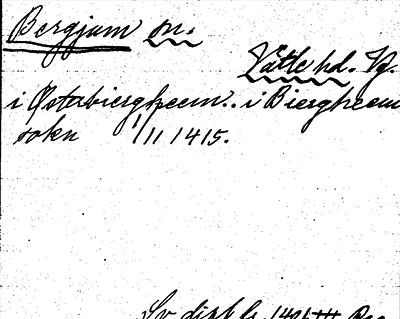 Bergjum sn.
Vätle hd. Vg.
i Østerbiergheem.. i Biergheem
sokn 1/11 1415.
Sv. dipl.